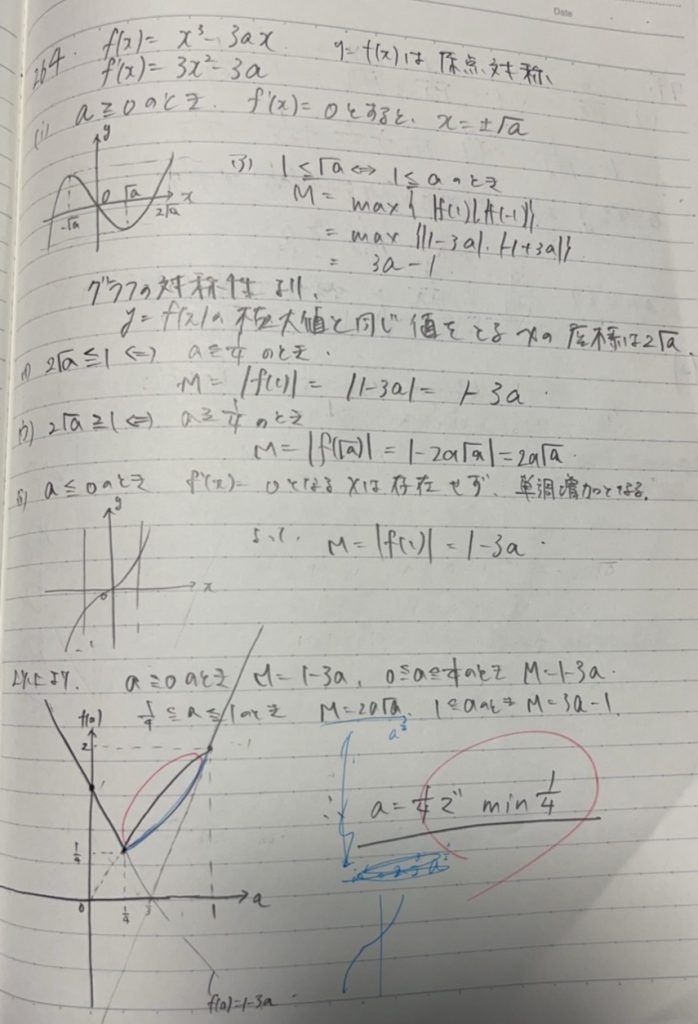 Date
264. f(x) = x³ - 3ax. y = f(x) は 原点対称、
f'(x) = 3x² - 3a
(i) a ≧ 0 のとき. f'(x) = 0 とすると、 x = ±√a
y
0 √a x
-√a 2√a
1 ≦ √a ⇔ 1 ≦ a のとき
M = max { |f(1)| |f(-1)|}
= max {|1-3a|, |-1+3a|}
= 3a - 1
グラフの対称性より、
y = f(x) の 極大値と同じ値をとる xの座標は2√a.
2√a ≦ 1 ⇔ a ≦ 1/4 のとき.
M = |f(1)| = |1-3a| = 1-3a.
2√a ≧ 1 ⇔ a ≧ 1/4 のとき
M = |f(√a)| = |-2a√a| = 2a√a.
a ≦ 0 のとき f'(x) = 0 となる xは存在せず、単調増加となる.
y
0 x
-1
よって. M = |f(1)| = 1-3a.
以上より. a ≧ 0 のとき M = 1-3a, 0 ≦ a ≦ 1/4 のとき M = 1-3a.
1/4 ≦ a ≦ 1 のとき M = 2a√a. 1 ≦ a のとき M = 3a-1.
f(a)
2
1/4
0 1/4 1 a
a = 1/4 で min 1/4
f(a)=1-3a